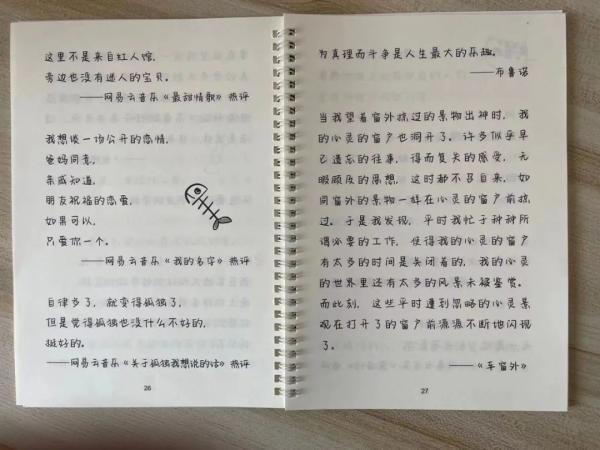 这里不是来自红人馆,
旁边也没有迷人的宝贝。
——网易云音乐《最甜情歌》热评
我想谈一场公开的恋情,
爸妈同意,
亲戚知道,
朋友祝福的恋爱,
如果可以,
只爱你一个。
——网易云音乐《我的名字》热评
自律多了,就变得孤独了,
但是觉得孤独也没什么不好的,
挺好的。
——网易云音乐《关于孤独我想说的话》热评
26
为真理而斗争是人生最大的乐趣。
——布鲁诺
当我望着窗外掠过的景物出神时,我
的心灵的窗户也洞开了。许多似乎早
已遗忘的往事,得而复失的感受,无
暇顾及的思想,这时都不召自来,如
同窗外的景物一样在心灵的窗户前掠
过。于是我发现,平时我忙于种种所
谓必要的工作,使得我的心灵的窗户
有太多的时间是关闭着的,我的心灵
的世界里还有太多的风景未被鉴赏。
而此刻,这些平时遭到忽略的心灵景
观在打开了的窗户前源源不断地闪现
了。
——《车窗外》
27